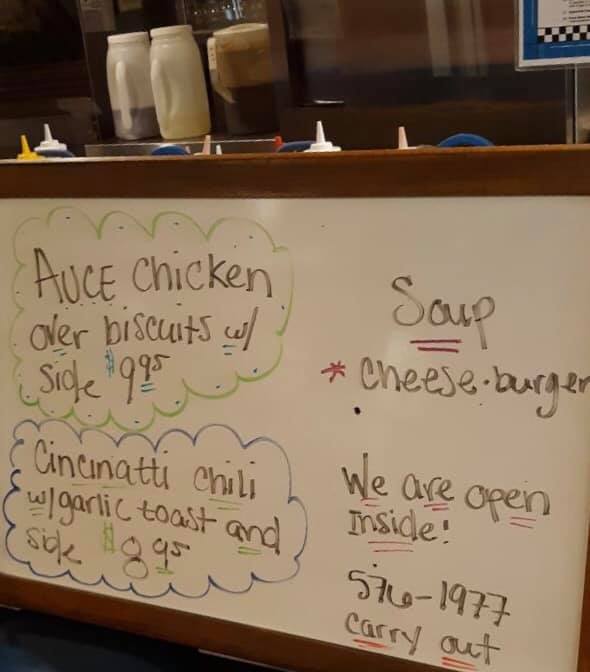 AUCE Chicken
over biscuits w/
side $9.95
Cincinatti chili
w/garlic toast and
side $8.95
Soup
* cheese.burger
We are open
Inside!
576-1977
carry out